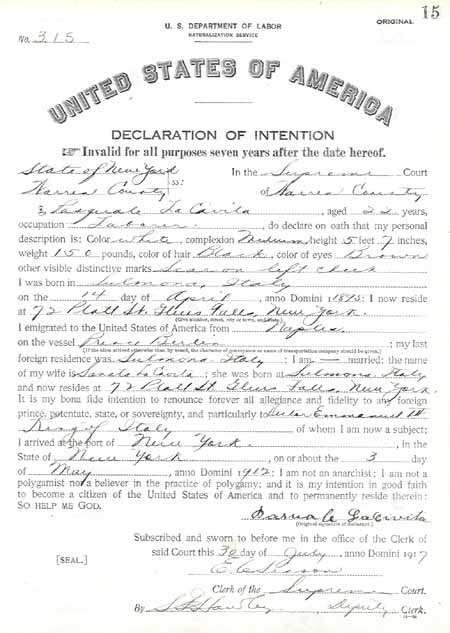 U. S. DEPARTMENT OF LABOR
NATURALIZATION SERVICE
ORIGINAL 15
No. 315
UNITED STATES OF AMERICA
DECLARATION OF INTENTION
☞ Invalid for all purposes seven years after the date hereof.
State of New York ss: In the Supreme Court
Warren County of Warren County
I, Pasquale La Civita, aged 22 years,
occupation Laborer, do declare on oath that my personal
description is: Color white, complexion Medium, height 5 feet 7 inches,
weight 150 pounds, color of hair Black, color of eyes Brown
other visible distinctive marks Scar on left cheek
I was born in Sulmona, Italy
on the 14 day of April, anno Domini 1895; I now reside
at 72 Platt St. Glens Falls, New York.
(Give number, street, city or town, and State.)
I emigrated to the United States of America from Naples
on the vessel ; my last
(If the alien arrived otherwise than by vessel, the character of conveyance or name of transportation company should be given.)
foreign residence was Sulmona Italy; I am — married; the name
of my wife is La Civita; she was born at Sulmona Italy
and now resides at 72 Platt St. Glens Falls, New York.
It is my bona fide intention to renounce forever all allegiance and fidelity to any foreign
prince, potentate, state, or sovereignty, and particularly to Emmanuel III
King of Italy of whom I am now a subject;
I arrived at the port of New York, in the
State of New York, on or about the 3 day
of May, anno Domini 1912; I am not an anarchist; I am not a
polygamist nor a believer in the practice of polygamy; and it is my intention in good faith
to become a citizen of the United States of America and to permanently reside therein:
SO HELP ME GOD.
(Original signature of declarant.)
Subscribed and sworn to before me in the office of the Clerk of
said Court this 30 day of July, anno Domini 1917
[SEAL.]
Clerk of the Supreme Court.
By Deputy Clerk.